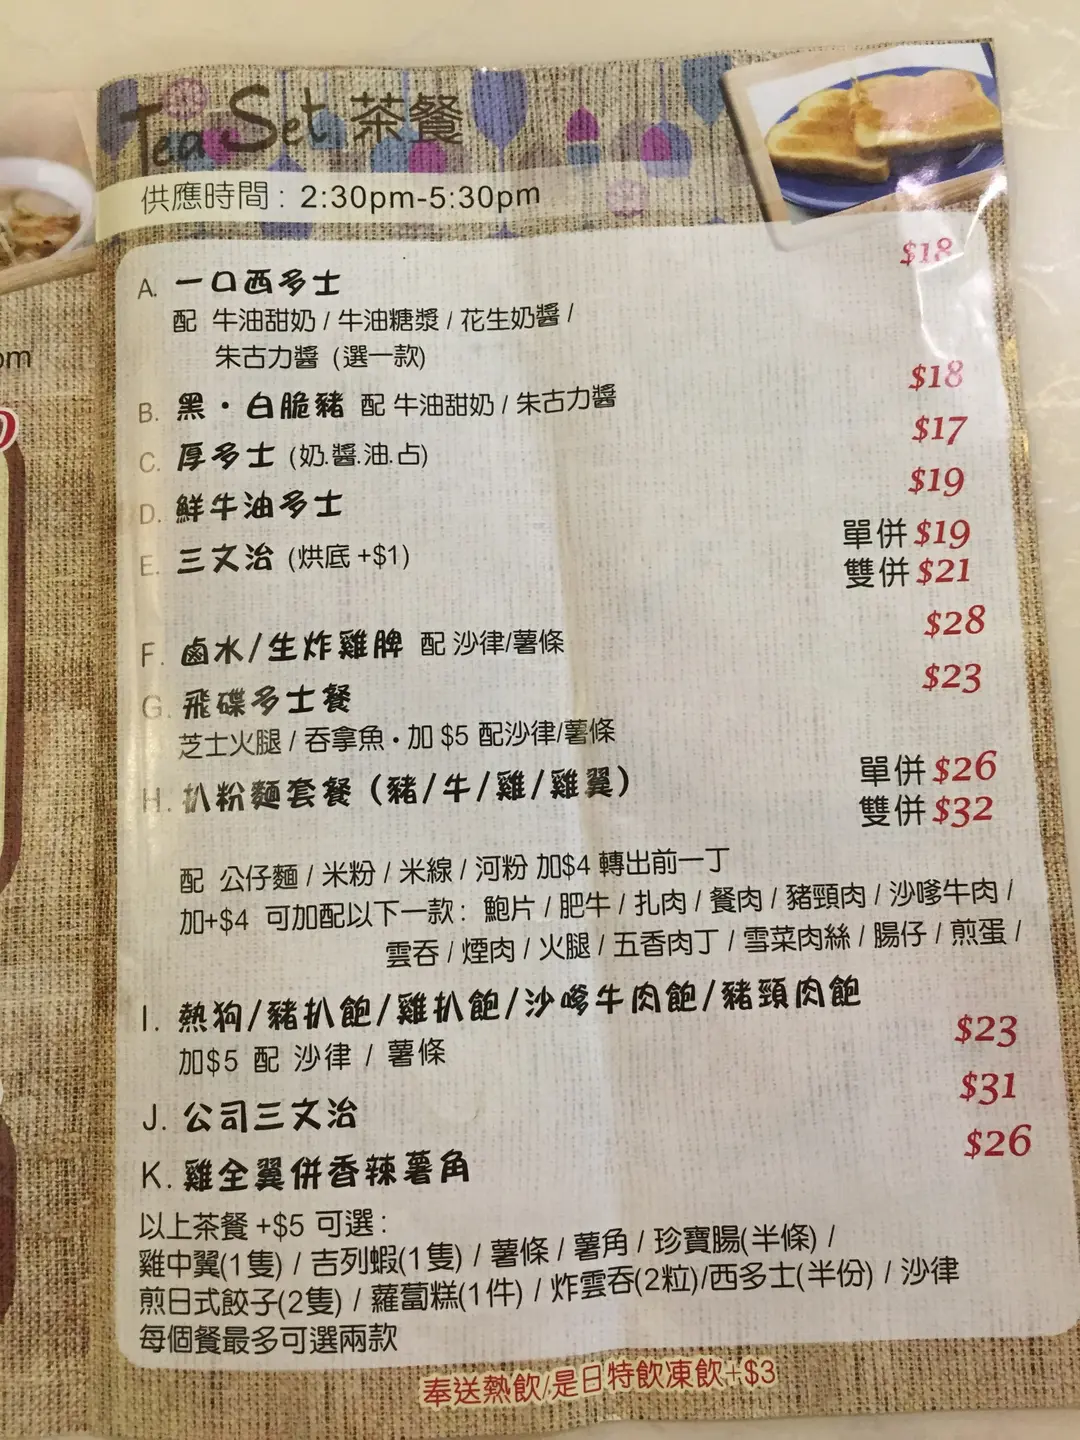 Tea Set 茶餐
供應時間 : 2:30pm-5:30pm
A. 一口西多士 $18
配 牛油甜奶 / 牛油糖漿 / 花生奶醬 /
朱古力醬 (選一款)
B. 黑・白脆豬 配 牛油甜奶 / 朱古力醬 $18
C. 厚多士 (奶.醬.油.占) $17
D. 鮮牛油多士 $19
E. 三文治 (烘底 +$1) 單併 $19
雙併 $21
F. 鹵水/生炸雞脾 配 沙律/薯條 $28
G. 飛碟多士餐 $23
芝士火腿 / 吞拿魚・加 $5 配沙律/薯條
H. 扒粉麵套餐 (豬/牛/雞/雞翼) 單併 $26
雙併 $32
配 公仔麵 / 米粉 / 米線 / 河粉 加$4 轉出前一丁
加+$4 可加配以下一款 : 鮑片 / 肥牛 / 扎肉 / 餐肉 / 豬頸肉 / 沙嗲牛肉 /
雲吞 / 煙肉 / 火腿 / 五香肉丁 / 雪菜肉絲 / 腸仔 / 煎蛋 /
I. 熱狗/豬扒飽/雞扒飽/沙嗲牛肉飽/豬頸肉飽 $23
加$5 配 沙律 / 薯條
J. 公司三文治 $31
K. 雞全翼併香辣薯角 $26
以上茶餐 +$5 可選 :
雞中翼(1隻) / 吉列蝦(1隻) / 薯條 / 薯角 / 珍寶腸(半條) /
煎日式餃子(2隻) / 蘿蔔糕(1件) / 炸雲吞(2粒)/西多士(半份) / 沙律
每個餐最多可選兩款
奉送熱飲/是日特飲凍飲+$3
om